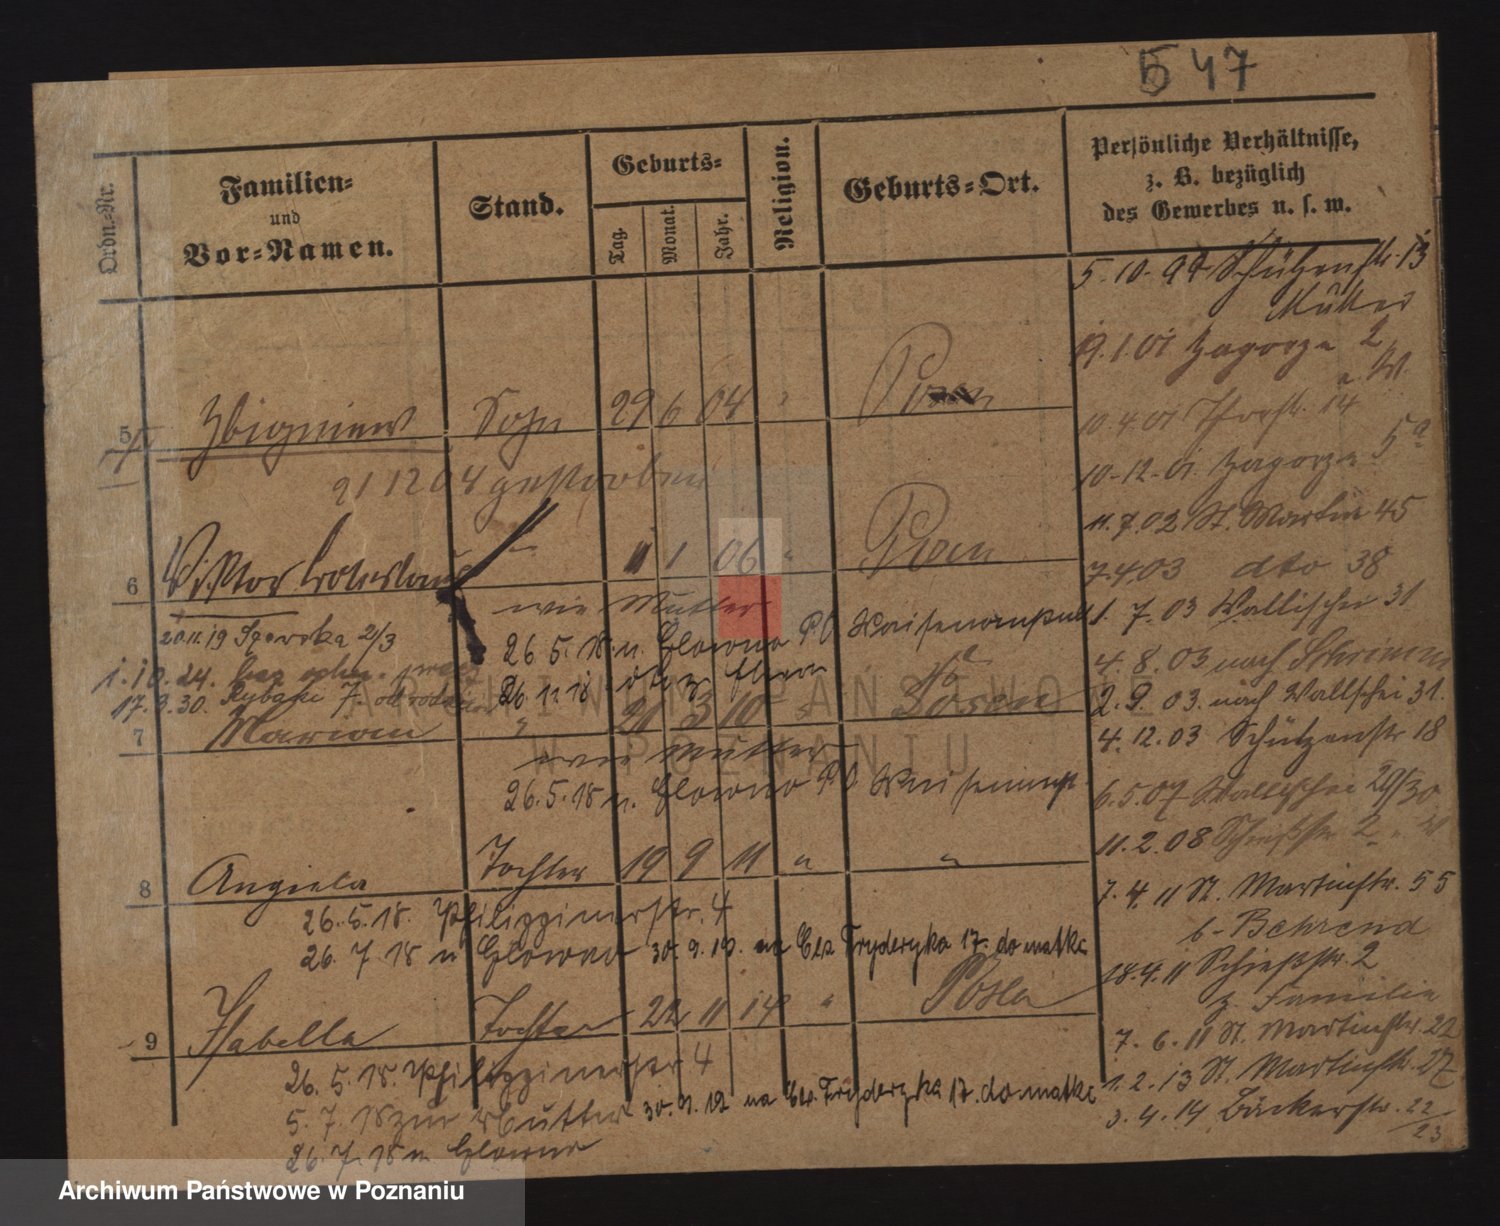 547
Ordn.-Nr.
Familien-
und
Vor-Namen.
Stand.
Geburts-
Tag.
Monat.
Jahr.
Religion.
Geburts-Ort.
Persönliche Verhältnisse,
z. B. bezüglich
des Gewerbes u. s. w.
5 Zbigniew Sohn 29 6 04 " Posen
21 12 04 gestorben
6 Viktor 1 1 06 " Posen
wie Mutter
20.11.19 Szewska 2/3
26.5.18. n. Glowno P.O Waisen
1.10.24. bez
26.11.18
17.9.30. Rybaki 7.
7 Marian " 21 3 10 " Posen
wie Mutter
26.5.18 n. Glowno P.O
8 Angiela Tochter 19 9 11 " "
26.5.18. Philippinerstr. 4
26.7.18 n Glowno 30.9.19. na Fryderyka 17. do matke
9 Isabella Tochter 22 11 14 " Posen
26.5.18. Philippinerstr 4
5.7.18 zur Mutter 30.9.19 na Fryderyka 17. do matke
26.7.18 n. Glowno
5.10.99 Schützenstr. 13
Mutter
19.1.01 Zagorze 2
10.4.01 14
10-12-01. Zagorze 5a
11.7.02 St. Martin 45
7.4.03 dto 38
1.7.03 Wallischei 31
4.8.03 nach Schrimm
2.9.03. nach Wallischei 31.
4.12.03 Schützenstr 18
6.5.07 Wallischei 29/30
11.2.08 Schießstr 2
7.4.11 St. Martinstr. 55
b. Behrend
18.4.11 Schießstr. 2
z. Familie
7.6.11 St. Martinstr. 22
1.2.13 St. Martinstr. 27
3.4.14 Bäckerstr. 22/23
ARCHIWUM PAŃSTWOWE
W POZNANIU
Archiwum Państwowe w Poznaniu